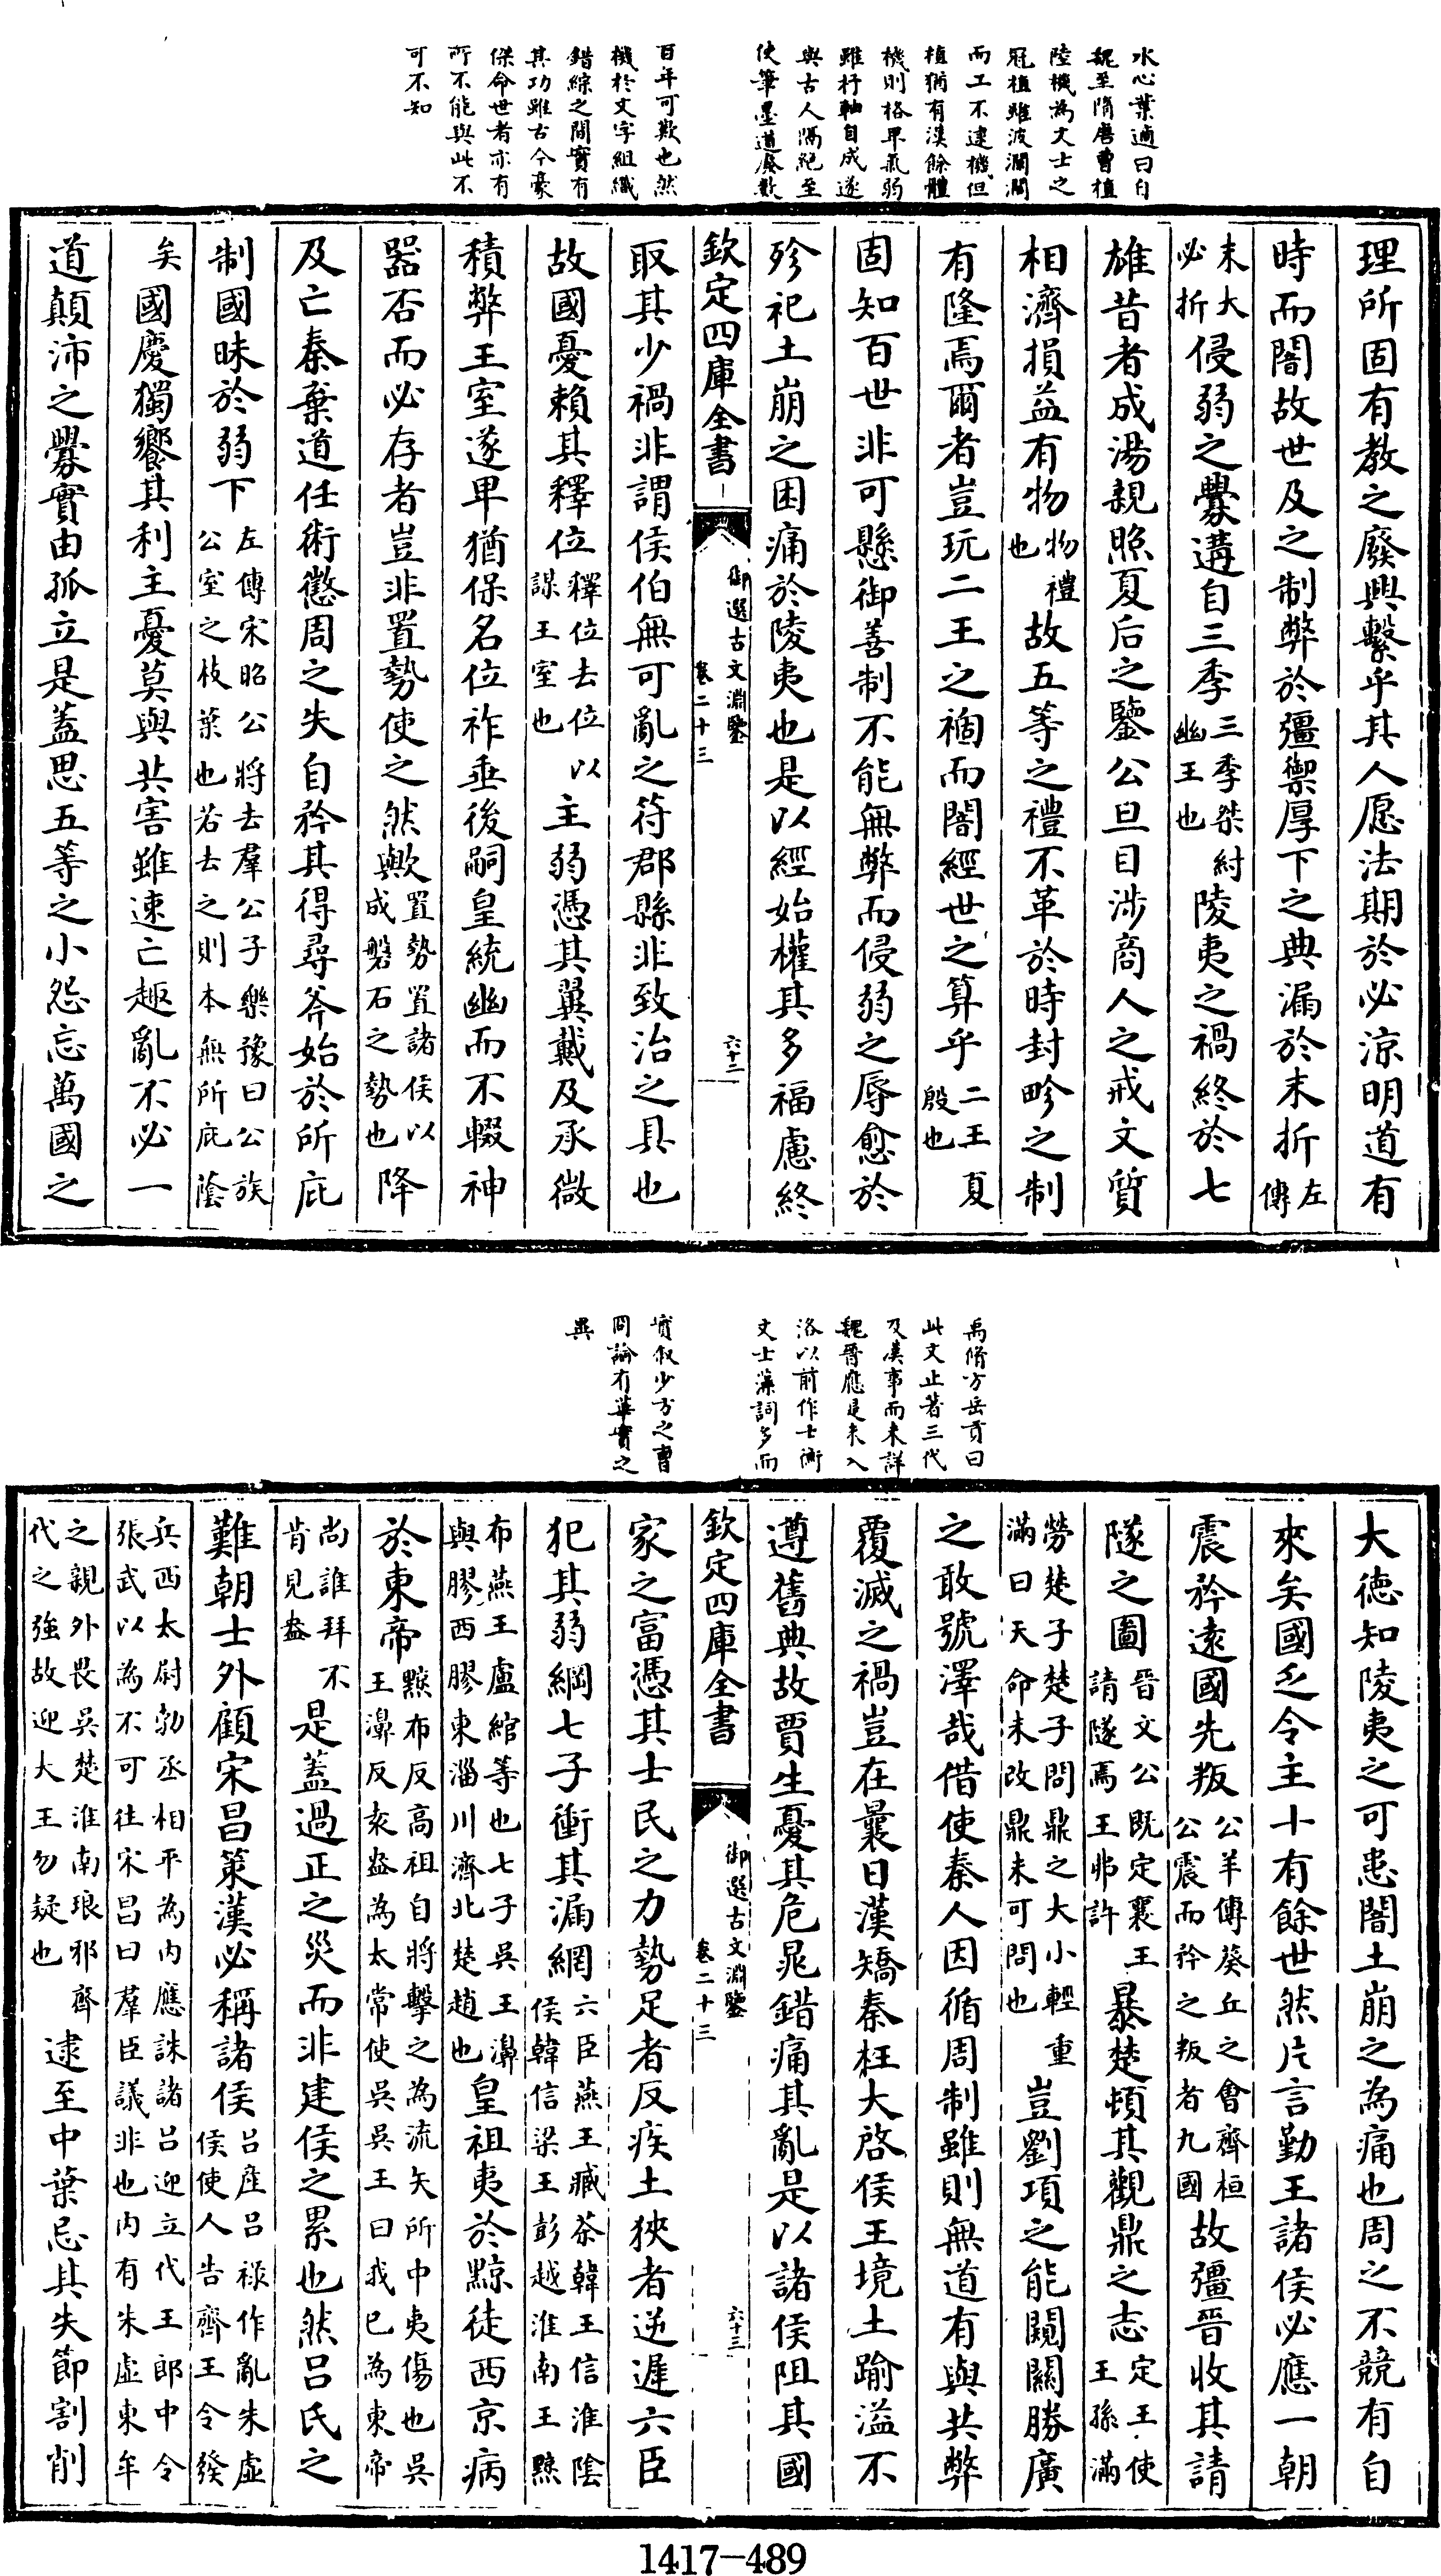 水心葉適曰自
魏至隋唐曹植
陸機為文士之
冠植雖波瀾闊
而工不逮機但
植猶有漢餘體
機則格卑氣弱
雖杼軸自成遂
與古人隔絕至
使筆墨道廢數
百年可歎也然
機於文字組織
錯綜之間實有
其功雖古今豪
傑命世者亦有
所不能與此不
可不知
理所固有教之廢興繫乎其人愿法期於必涼明道有
時而闇故世及之制弊於彊禦厚下之典漏於末折左傳
末大必折侵弱之釁遘自三季三季桀紂幽王也陵夷之禍終於七
雄昔者成湯親照夏后之鑒公旦目涉商人之戒文質
相濟損益有物物禮也故五等之禮不革於時封畛之制
有隆焉爾者豈玩二王之禍而闇經世之算乎二王夏殷也
固知百世非可懸御善制不能無弊而侵弱之辱愈於
殄祀土崩之困痛於陵夷也是以經始權其多福慮終
欽定四庫全書
御選古文淵鑒
卷二十三
六十二
取其少禍非謂侯伯無可亂之符郡縣非致治之具也
故國憂賴其釋位釋位去位以謀王室也主弱憑其翼戴及承微
積弊王室遂卑猶保名位祚垂後嗣皇統幽而不輟神
器否而必存者豈非置勢使之然歟置勢置諸侯以成磐石之勢也降
及亡秦棄道任術懲周之失自矜其得尋斧始於所庇
制國昧於弱下左傳宋昭公將去羣公子樂豫曰公族公室之枝葉也若去之則本無所庇蔭
矣國慶獨饗其利主憂莫與共害雖速亡趨亂不必一
道顛沛之釁實由孤立是蓋思五等之小怨忘萬國之
禹脩方岳貢曰
此文止著三代
及漢事而未詳
魏晉應是未入
洛以前作士衡
文士藻詞多而
實叙少方之曹
冏論有華實之
異
大德知陵夷之可患闇土崩之為痛也周之不競有自
來矣國乏令主十有餘世然片言勤王諸侯必應一朝
震矜遠國先叛公羊傳葵丘之會齊桓公震而矜之叛者九國故彊晉收其請
隧之圖晉文公既定襄王請隧焉王弗許暴楚頓其觀鼎之志定王使王孫滿
勞楚子楚子問鼎之大小輕重滿曰天命未改鼎未可問也豈劉項之能闚關勝廣
之敢號澤哉借使秦人因循周制雖則無道有與共弊
覆滅之禍豈在曩日漢矯秦枉大啓侯王境土踰溢不
遵舊典故賈生憂其危晁錯痛其亂是以諸侯阻其國
欽定四庫全書
御選古文淵鑒
卷二十三
六十三
家之富憑其士民之力勢足者反疾土狹者逆遲六臣
犯其弱綱七子衝其漏網六臣燕王臧荼韓王信淮陰侯韓信梁王彭越淮南王黥
布燕王盧綰等也七子吳王濞與膠西膠東淄川濟北楚趙也皇祖夷於黥徒西京病
於東帝黥布反高祖自將擊之為流矢所中夷傷也吳王濞反袁盎為太常使吳吳王曰我已為東帝
尚誰拜不肯見盎是蓋過正之災而非建侯之累也然呂氏之
難朝士外顧宋昌策漢必稱諸侯呂產呂祿作亂朱虛侯使人告齊王令發
兵西太尉勃丞相平為內應誅諸呂迎立代王郎中令張武以為不可往宋昌曰羣臣議非也內有朱虛東牟
之親外畏吳楚淮南琅邪齊代之強故迎大王勿疑也逮至中葉忌其失節割削
1417-489